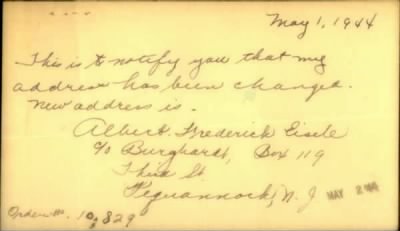 May 1, 1944
This is to notify you that my
address has been changed.
New address is.
Albert Frederick Eisele
c/o Burghardt, Box 119
Third St.
Pequannock, N. J
MAY 2 1944
Order no. 10,829